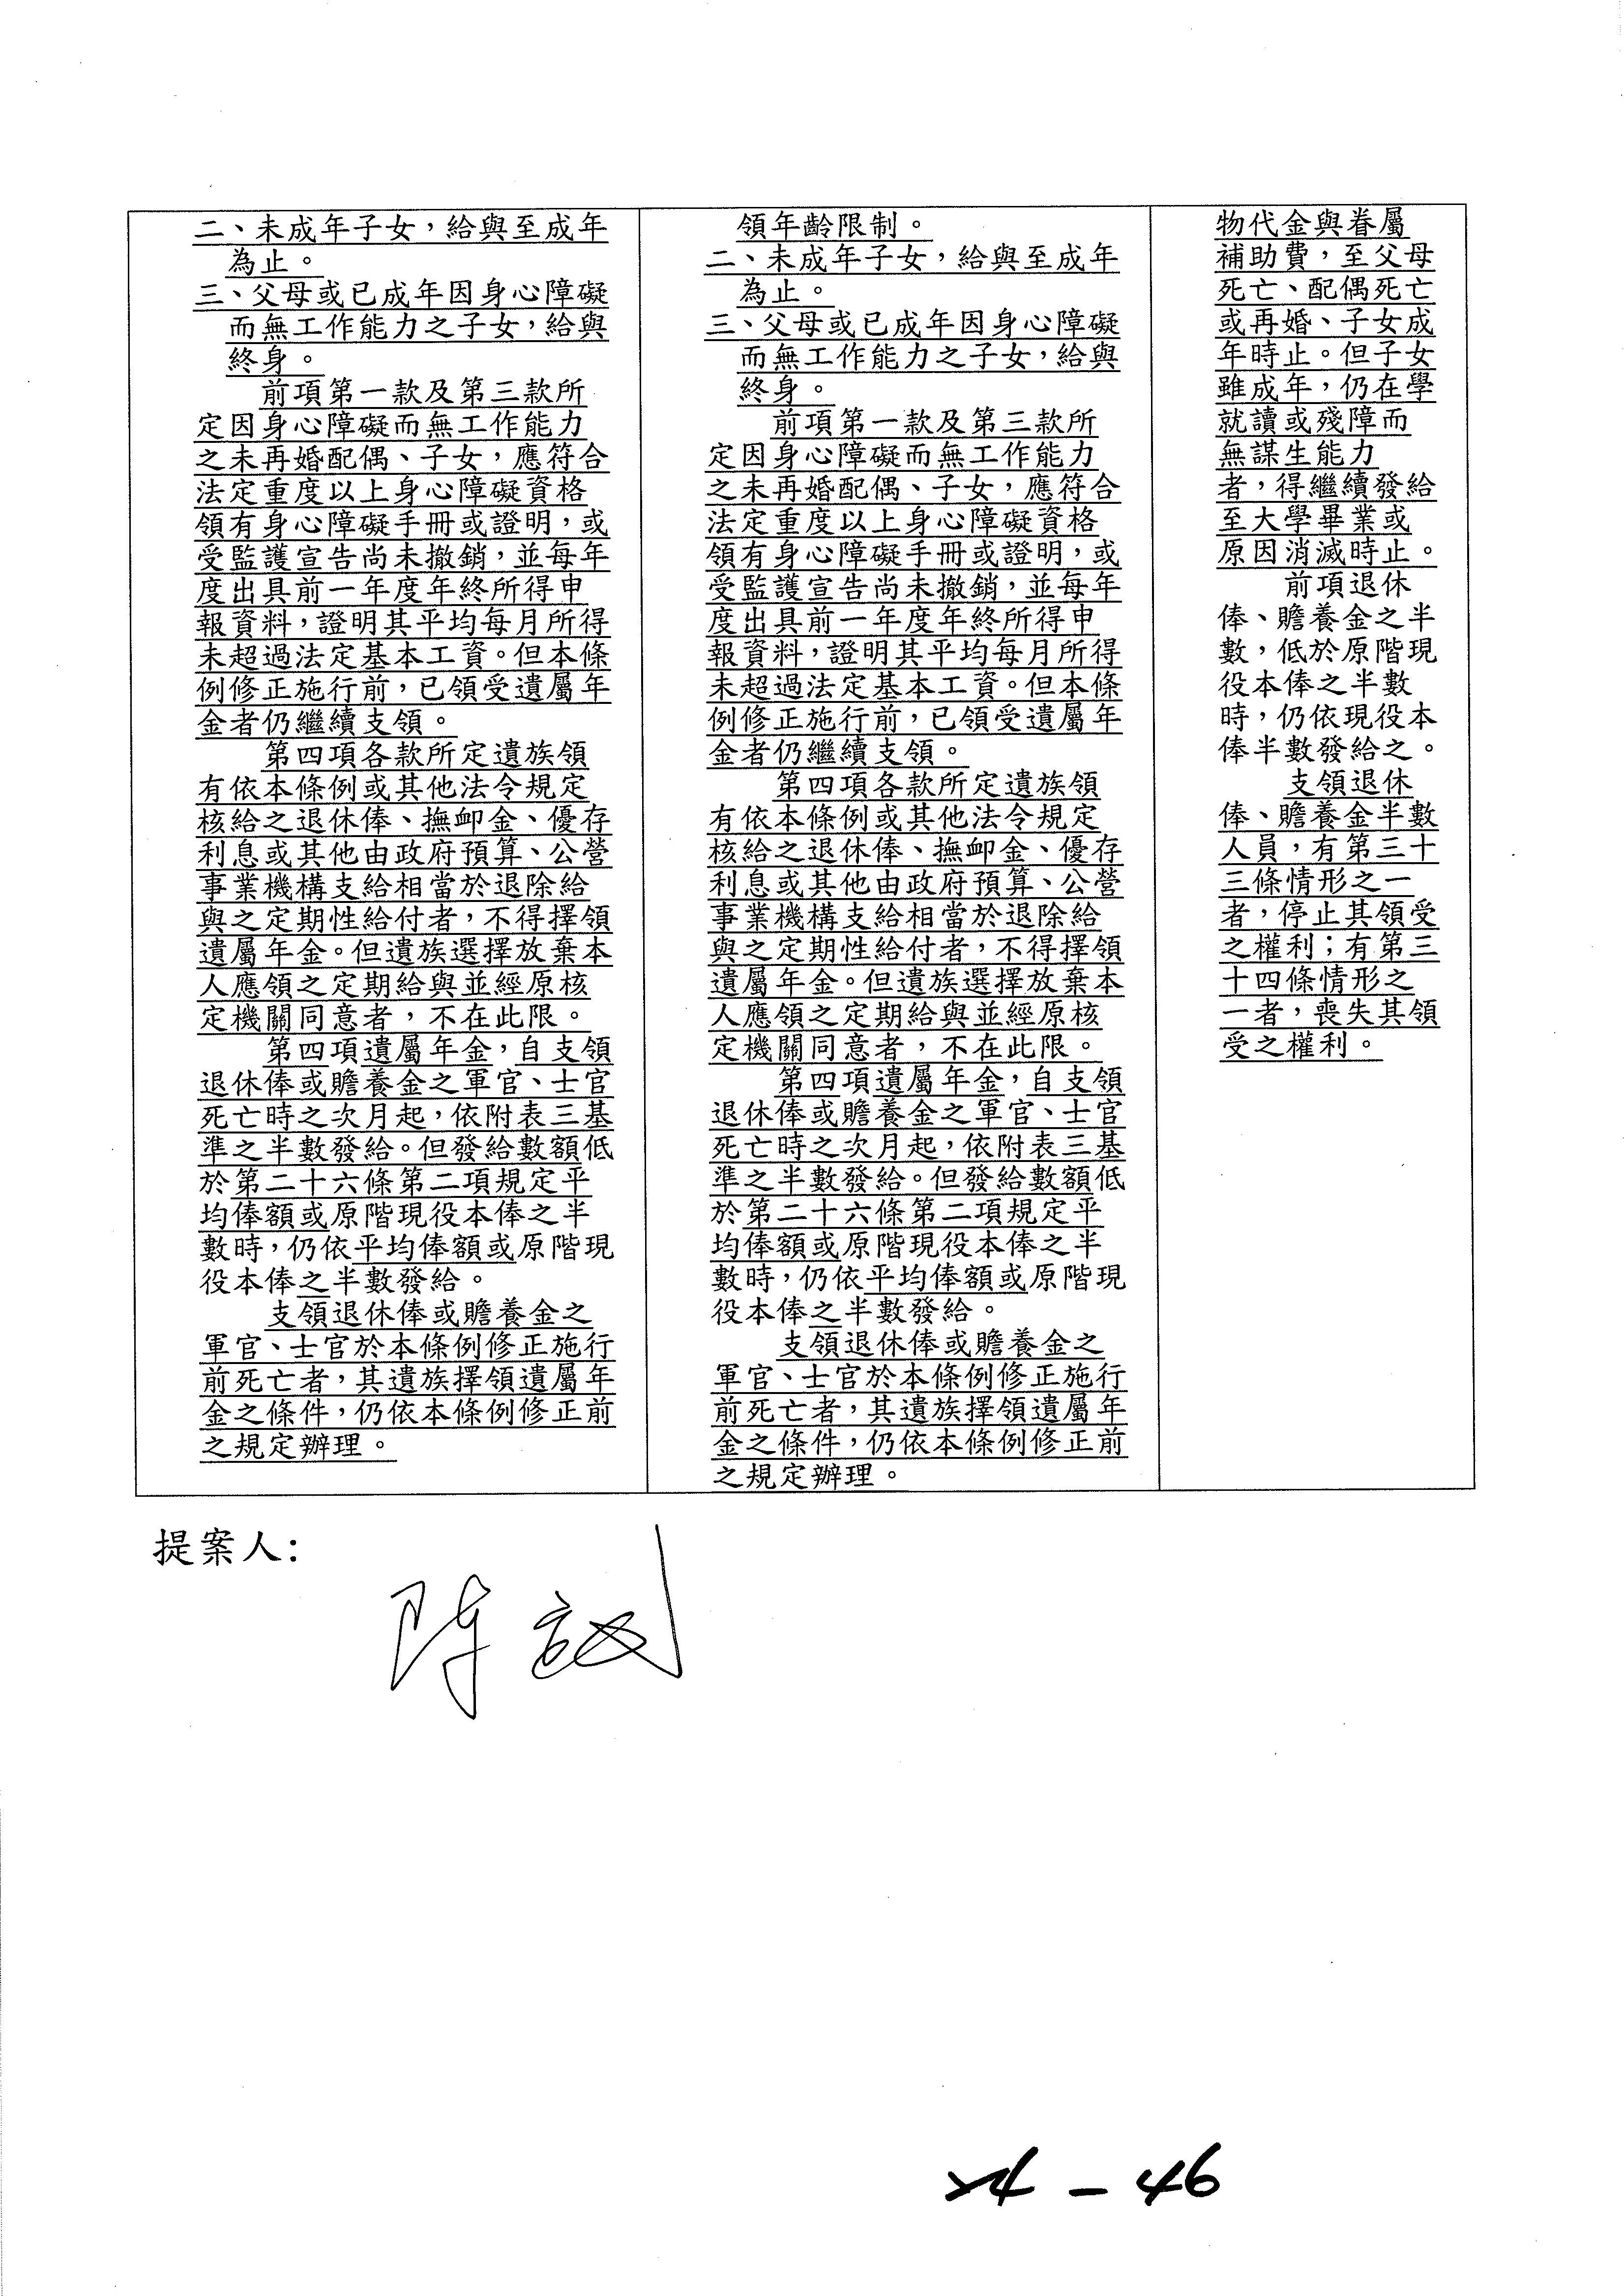 二、未成年子女，給與至成年
為止。
三、父母或已成年因身心障礙
而無工作能力之子女，給與
終身。
前項第一款及第三款所
定因身心障礙而無工作能力
之未再婚配偶、子女，應符合
法定重度以上身心障礙資格
領有身心障礙手冊或證明，或
受監護宣告尚未撤銷，並每年
度出具前一年度年終所得申
報資料，證明其平均每月所得
未超過法定基本工資。但本條
例修正施行前，已領受遺屬年
金者仍繼續支領。
第四項各款所定遺族領
有依本條例或其他法令規定
核給之退休俸、撫卹金、優存
利息或其他由政府預算、公營
事業機構支給相當於退除給
與之定期性給付者，不得擇領
遺屬年金。但遺族選擇放棄本
人應領之定期給與並經原核
定機關同意者，不在此限。
第四項遺屬年金，自支領
退休俸或贍養金之軍官、士官
死亡時之次月起，依附表三基
準之半數發給。但發給數額低
於第二十六條第二項規定平
均俸額或原階現役本俸之半
數時，仍依平均俸額或原階現
役本俸之半數發給。
支領退休俸或贍養金之
軍官、士官於本條例修正施行
前死亡者，其遺族擇領遺屬年
金之條件，仍依本條例修正前
之規定辦理。
領年齡限制。
二、未成年子女，給與至成年
為止。
三、父母或已成年因身心障礙
而無工作能力之子女，給與
終身。
前項第一款及第三款所
定因身心障礙而無工作能力
之未再婚配偶、子女，應符合
法定重度以上身心障礙資格
領有身心障礙手冊或證明，或
受監護宣告尚未撤銷，並每年
度出具前一年度年終所得申
報資料，證明其平均每月所得
未超過法定基本工資。但本條
例修正施行前，已領受遺屬年
金者仍繼續支領。
第四項各款所定遺族領
有依本條例或其他法令規定
核給之退休俸、撫卹金、優存
利息或其他由政府預算、公營
事業機構支給相當於退除給
與之定期性給付者，不得擇領
遺屬年金。但遺族選擇放棄本
人應領之定期給與並經原核
定機關同意者，不在此限。
第四項遺屬年金，自支領
退休俸或贍養金之軍官、士官
死亡時之次月起，依附表三基
準之半數發給。但發給數額低
於第二十六條第二項規定平
均俸額或原階現役本俸之半
數時，仍依平均俸額或原階現
役本俸之半數發給。
支領退休俸或贍養金之
軍官、士官於本條例修正施行
前死亡者，其遺族擇領遺屬年
金之條件，仍依本條例修正前
之規定辦理。
物代金與眷屬
補助費，至父母
死亡、配偶死亡
或再婚、子女成
年時止。但子女
雖成年，仍在學
就讀或殘障而
無謀生能力
者，得繼續發給
至大學畢業或
原因消滅時止。
前項退休
俸、贍養金之半
數，低於原階現
役本俸之半數
時，仍依現役本
俸半數發給之。
支領退休
俸、贍養金半數
人員，有第三十
三條情形之一
者，停止其領受
之權利；有第三
十四條情形之
一者，喪失其領
受之權利。
提案人：
陳
- 46